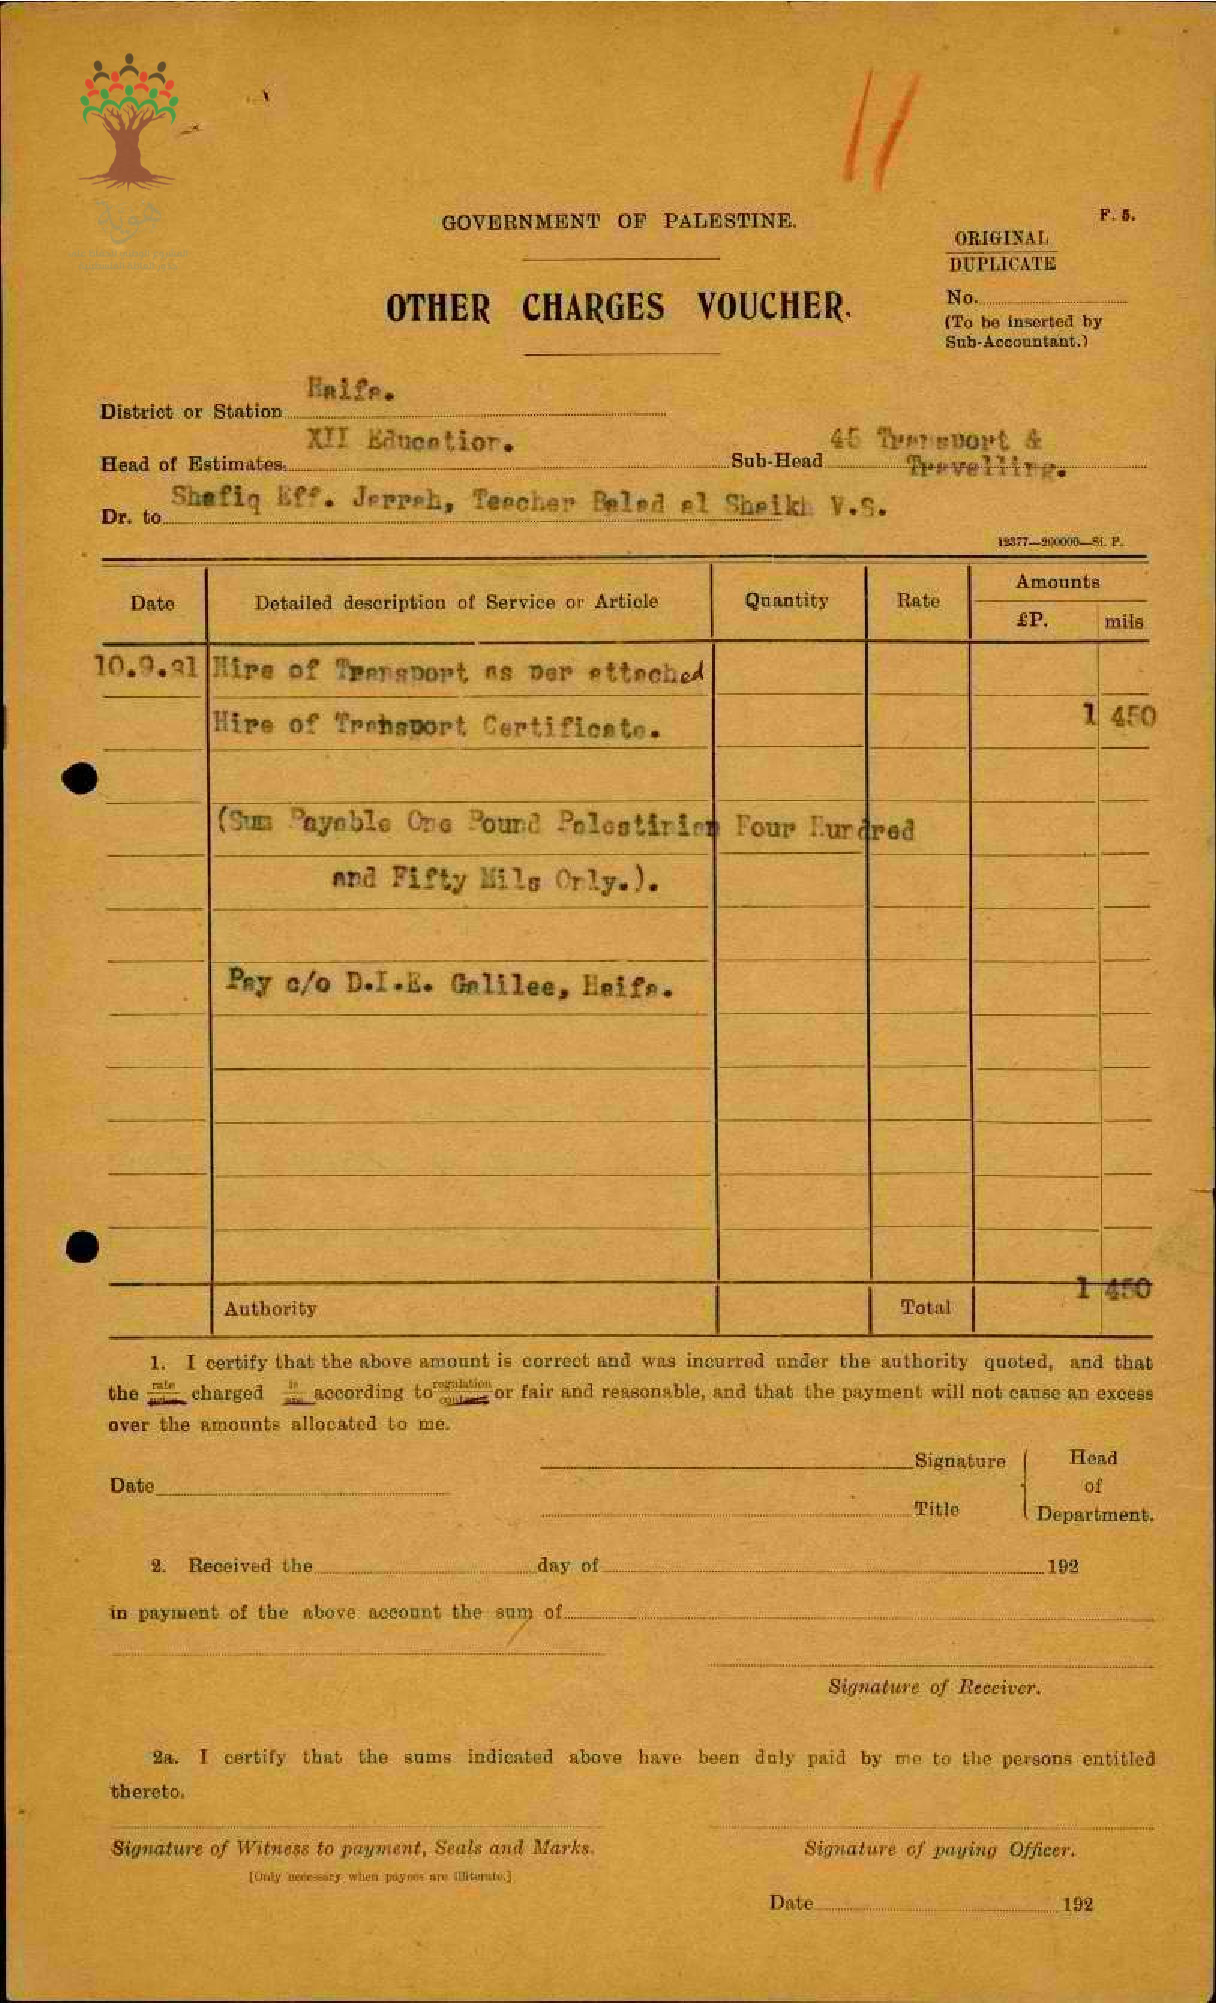 11
GOVERNMENT OF PALESTINE.
F. 5.
ORIGINAL
DUPLICATE
OTHER CHARGES VOUCHER.
No.
(To be inserted by
Sub-Accountant.)
District or Station Haifa.
Head of Estimates. XII Education. Sub-Head 45 Transport &
Travelling.
Dr. to Shafiq Eff. Jarrah, Teacher Balad al Sheikh V.S.
12377—200000—St. P.
Date Detailed description of Service or Article Quantity Rate Amounts
£P. mils
10.9.31 Hire of Transport as per attached
Hire of Transport Certificate. 1 450
(Sum Payable One Pound Palestinian Four Hundred
and Fifty Mils Only.).
Pay c/o D.I.E. Galilee, Haifa.
1 450
Authority Total
1. I certify that the above amount is correct and was incurred under the authority quoted, and that
the rate charged is according to regulation or fair and reasonable, and that the payment will not cause an excess
over the amounts allocated to me.
Signature Head
Date of
Title Department.
2. Received the day of 192
in payment of the above account the sum of
Signature of Receiver.
2a. I certify that the sums indicated above have been duly paid by me to the persons entitled
thereto.
Signature of Witness to payment, Seals and Marks. Signature of paying Officer.
[Only necessary when payees are illiterate.]
Date 192